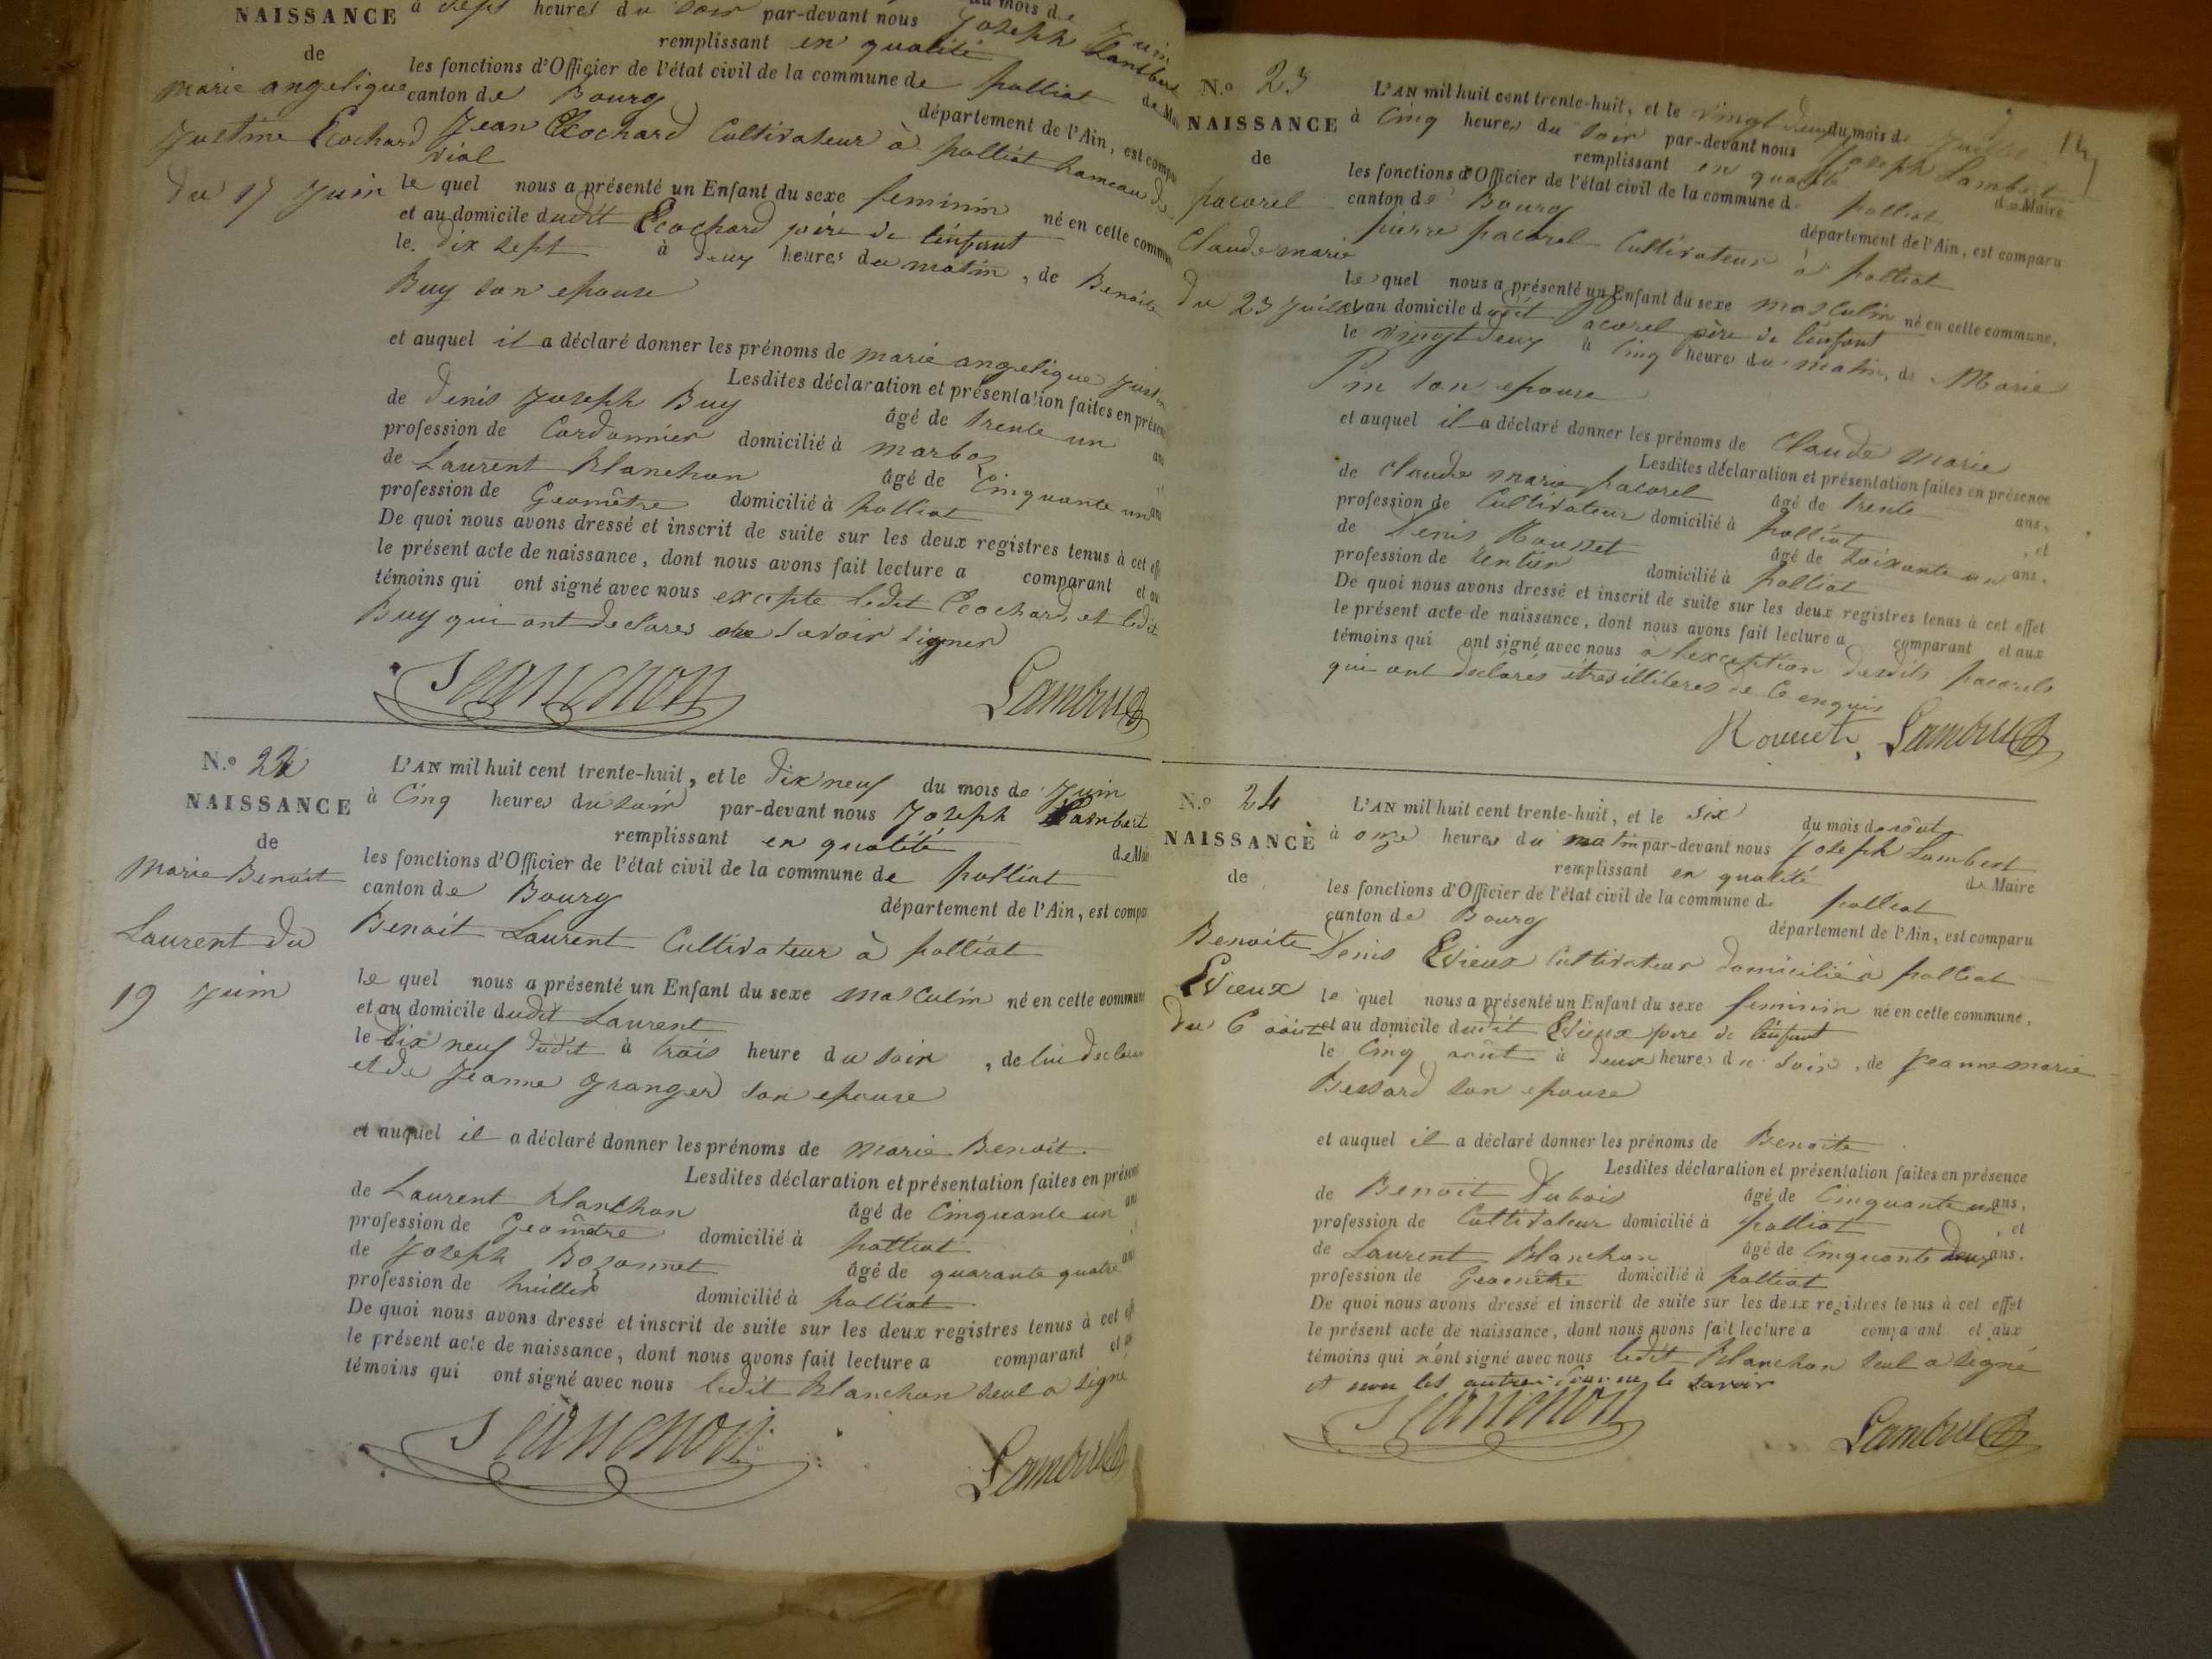 NAISSANCE
de
Marie angelique
Justine Ecochard
du 17 Juin
du mois de Juin
à Sept heures du soir par-devant nous Joseph Lambert
remplissant en qualité de Mai
les fonctions d'Officier de l'état civil de la commune de polliat
canton de Bourg département de l'Ain, est compa
Jean Ecochard Cultivateur à polliat hameau de
vial
le quel nous a présenté un Enfant du sexe feminin né en cette commu
et au domicile dudit Ecochard père de l'enfant
le dix sept à deux heures du matin, de Benoite
Buy son epouse
et auquel il a déclaré donner les prénoms de marie angelique Justin
Lesdites déclaration et présentation faites en présen
de Denis Joseph Buy âgé de trente un ans
profession de Cordonnier domicilié à marboz
de Laurent Blanchon âgé de Cinquante un ans
profession de Geomètre domicilié à polliat
De quoi nous avons dressé et inscrit de suite sur les deux registres tenus à cet eff
le présent acte de naissance, dont nous avons fait lecture a comparant et au
témoins qui ont signé avec nous excepte ledit Ecochard et ledit
Buy qui ont declarés ne savoir signer
Blanchon Lambert
N.o 22
NAISSANCE
de
Marie Benoit
Laurent du
19 Juin
L'AN mil huit cent trente-huit, et le dix neuf du mois de Juin
à Cinq heures du soir par-devant nous Joseph Lambert
remplissant en qualité de Mai
les fonctions d'Officier de l'état civil de la commune de polliat
canton de Bourg département de l'Ain, est compa
Benoit Laurent Cultivateur à polliat
le quel nous a présenté un Enfant du sexe masculin né en cette commun
et au domicile dudit Laurent
le dix neuf dudit à trois heure du soir, de lui declarant
et de Jeanne Granger son epouse
et auquel il a déclaré donner les prénoms de Marie Benoit
Lesdites déclaration et présentation faites en présen
de Laurent Blanchon âgé de Cinquante un ans
profession de Geomètre domicilié à polliat
de Joseph Bozonnet âgé de quarante quatre ans
profession de huillier domicilié à polliat
De quoi nous avons dressé et inscrit de suite sur les deux registres tenus à cet eff
le présent acte de naissance, dont nous avons fait lecture a comparant et a
témoins qui ont signé avec nous ledit Blanchon seul a signé
Blanchon Lambert
N.o 23
NAISSANCE
de
pacorel
Claude marie
du 23 Juillet
L'AN mil huit cent trente-huit, et le vingt deux du mois de Juillet
à Cinq heures du soir par-devant nous Joseph Lambert
remplissant en qualité de Maire
les fonctions d'Officier de l'état civil de la commune de polliat
canton de Bourg département de l'Ain, est comparu
pierre pacorel Cultivateur à polliat
le quel nous a présenté un Enfant du sexe masculin né en cette commune,
et au domicile dudit pacorel père de l'enfant
le vingt deux à Cinq heures du matin, de Marie
Pin son epouse
et auquel il a déclaré donner les prénoms de Claude Marie
Lesdites déclaration et présentation faites en présence
de Claude marie pacorel âgé de trente ans,
profession de Cultivateur domicilié à polliat , et
de Denis Rousset âgé de soixante un ans.
profession de rentier domicilié à polliat
De quoi nous avons dressé et inscrit de suite sur les deux registres tenus à cet effet
le présent acte de naissance, dont nous avons fait lecture a comparant et aux
témoins qui ont signé avec nous a l'exception desdits pacorels
qui ont declarés etres illiteres de ce enquis
Rousset, Lambert
N.o 24
NAISSANCE
de
Benoite
Evieux
du 6 août
L'AN mil huit cent trente-huit, et le six du mois de août
à onze heures du matin par-devant nous Joseph Lambert
remplissant en qualité de Maire
les fonctions d'Officier de l'état civil de la commune de polliat
canton de Bourg département de l'Ain, est comparu
Denis Evieux Cultivateur domicilié à polliat
le quel nous a présenté un Enfant du sexe feminin né en cette commune,
et au domicile dudit Evieux père de l'enfant
le Cinq août à deux heures du soir, de Jeanne marie
Bessard son epouse
et auquel il a déclaré donner les prénoms de Benoite
Lesdites déclaration et présentation faites en présence
de Benoit Dubois âgé de Cinquante un ans,
profession de Cultivateur domicilié à polliat , et
de Laurent Blanchon âgé de Cinquante deux ans.
profession de Geomètre domicilié à polliat
De quoi nous avons dressé et inscrit de suite sur les deux registres tenus à cet effet
le présent acte de naissance, dont nous avons fait lecture a comparant et aux
témoins qui n'ont signé avec nous ledit Blanchon seul a signé
et non les autres pour ne le savoir
Blanchon Lambert